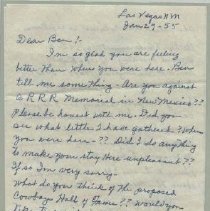 Las Vegas N M
Jan 27-55
Dear Ben!-
I'm so glad you are feeling
better than when you were here. Ben
tell me something. Are you against
a R.R.R. Memorial in New Mexico??
Please be honest with me. Did you
see what little I have gathered? When
you were here -?? Did I do anything
to make your stay Here unpleasant??
If so I'm very sorry-
What do you think of the proposed
Cowboys Hall of Fame?? Would you